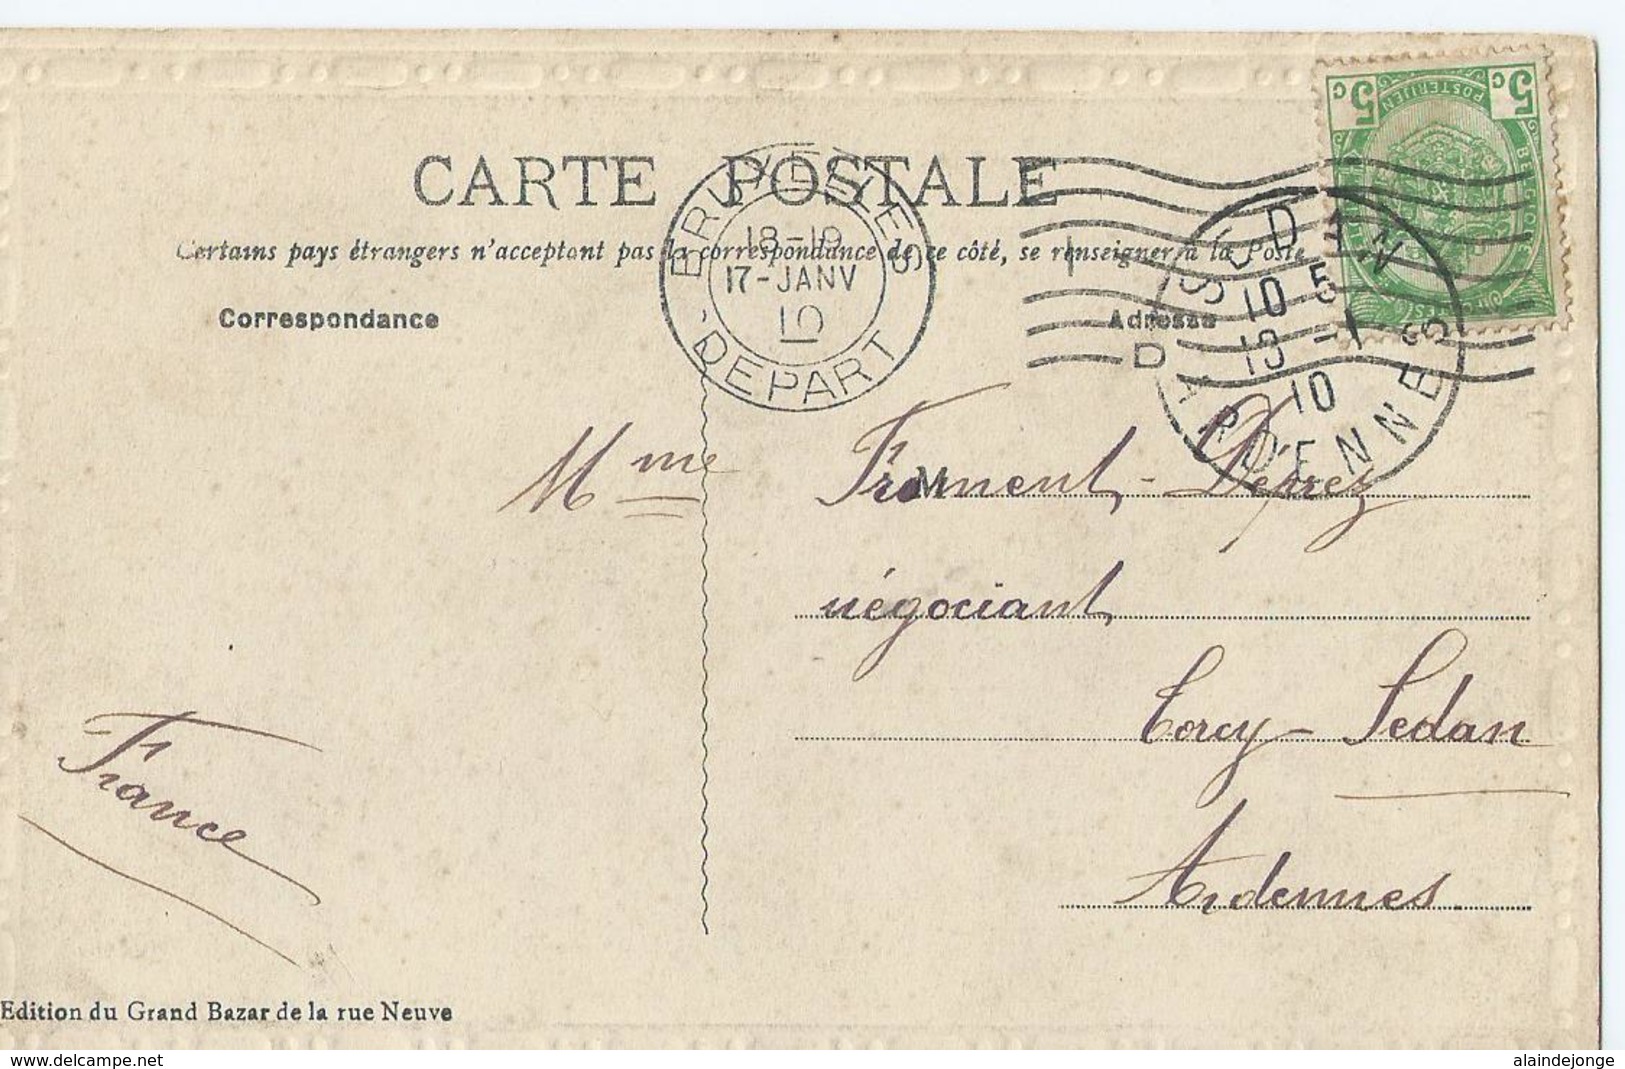 CARTE POSTALE
Certains pays étrangers n'acceptent pas la correspondance de ce côté, se renseigner à la Poste
Correspondance
Adresse
BRUXELLES
18-19
17-JANV
10
DEPART
D
SEDAN
10 5
18 -1
10
ARDENNES
5c
5c
POSTERIJEN
Mme Froment-Déprez
M
négociant
Torcy-Sedan
Ardennes
France
Edition du Grand Bazar de la rue Neuve
www.delcampe.net
alaindejonge